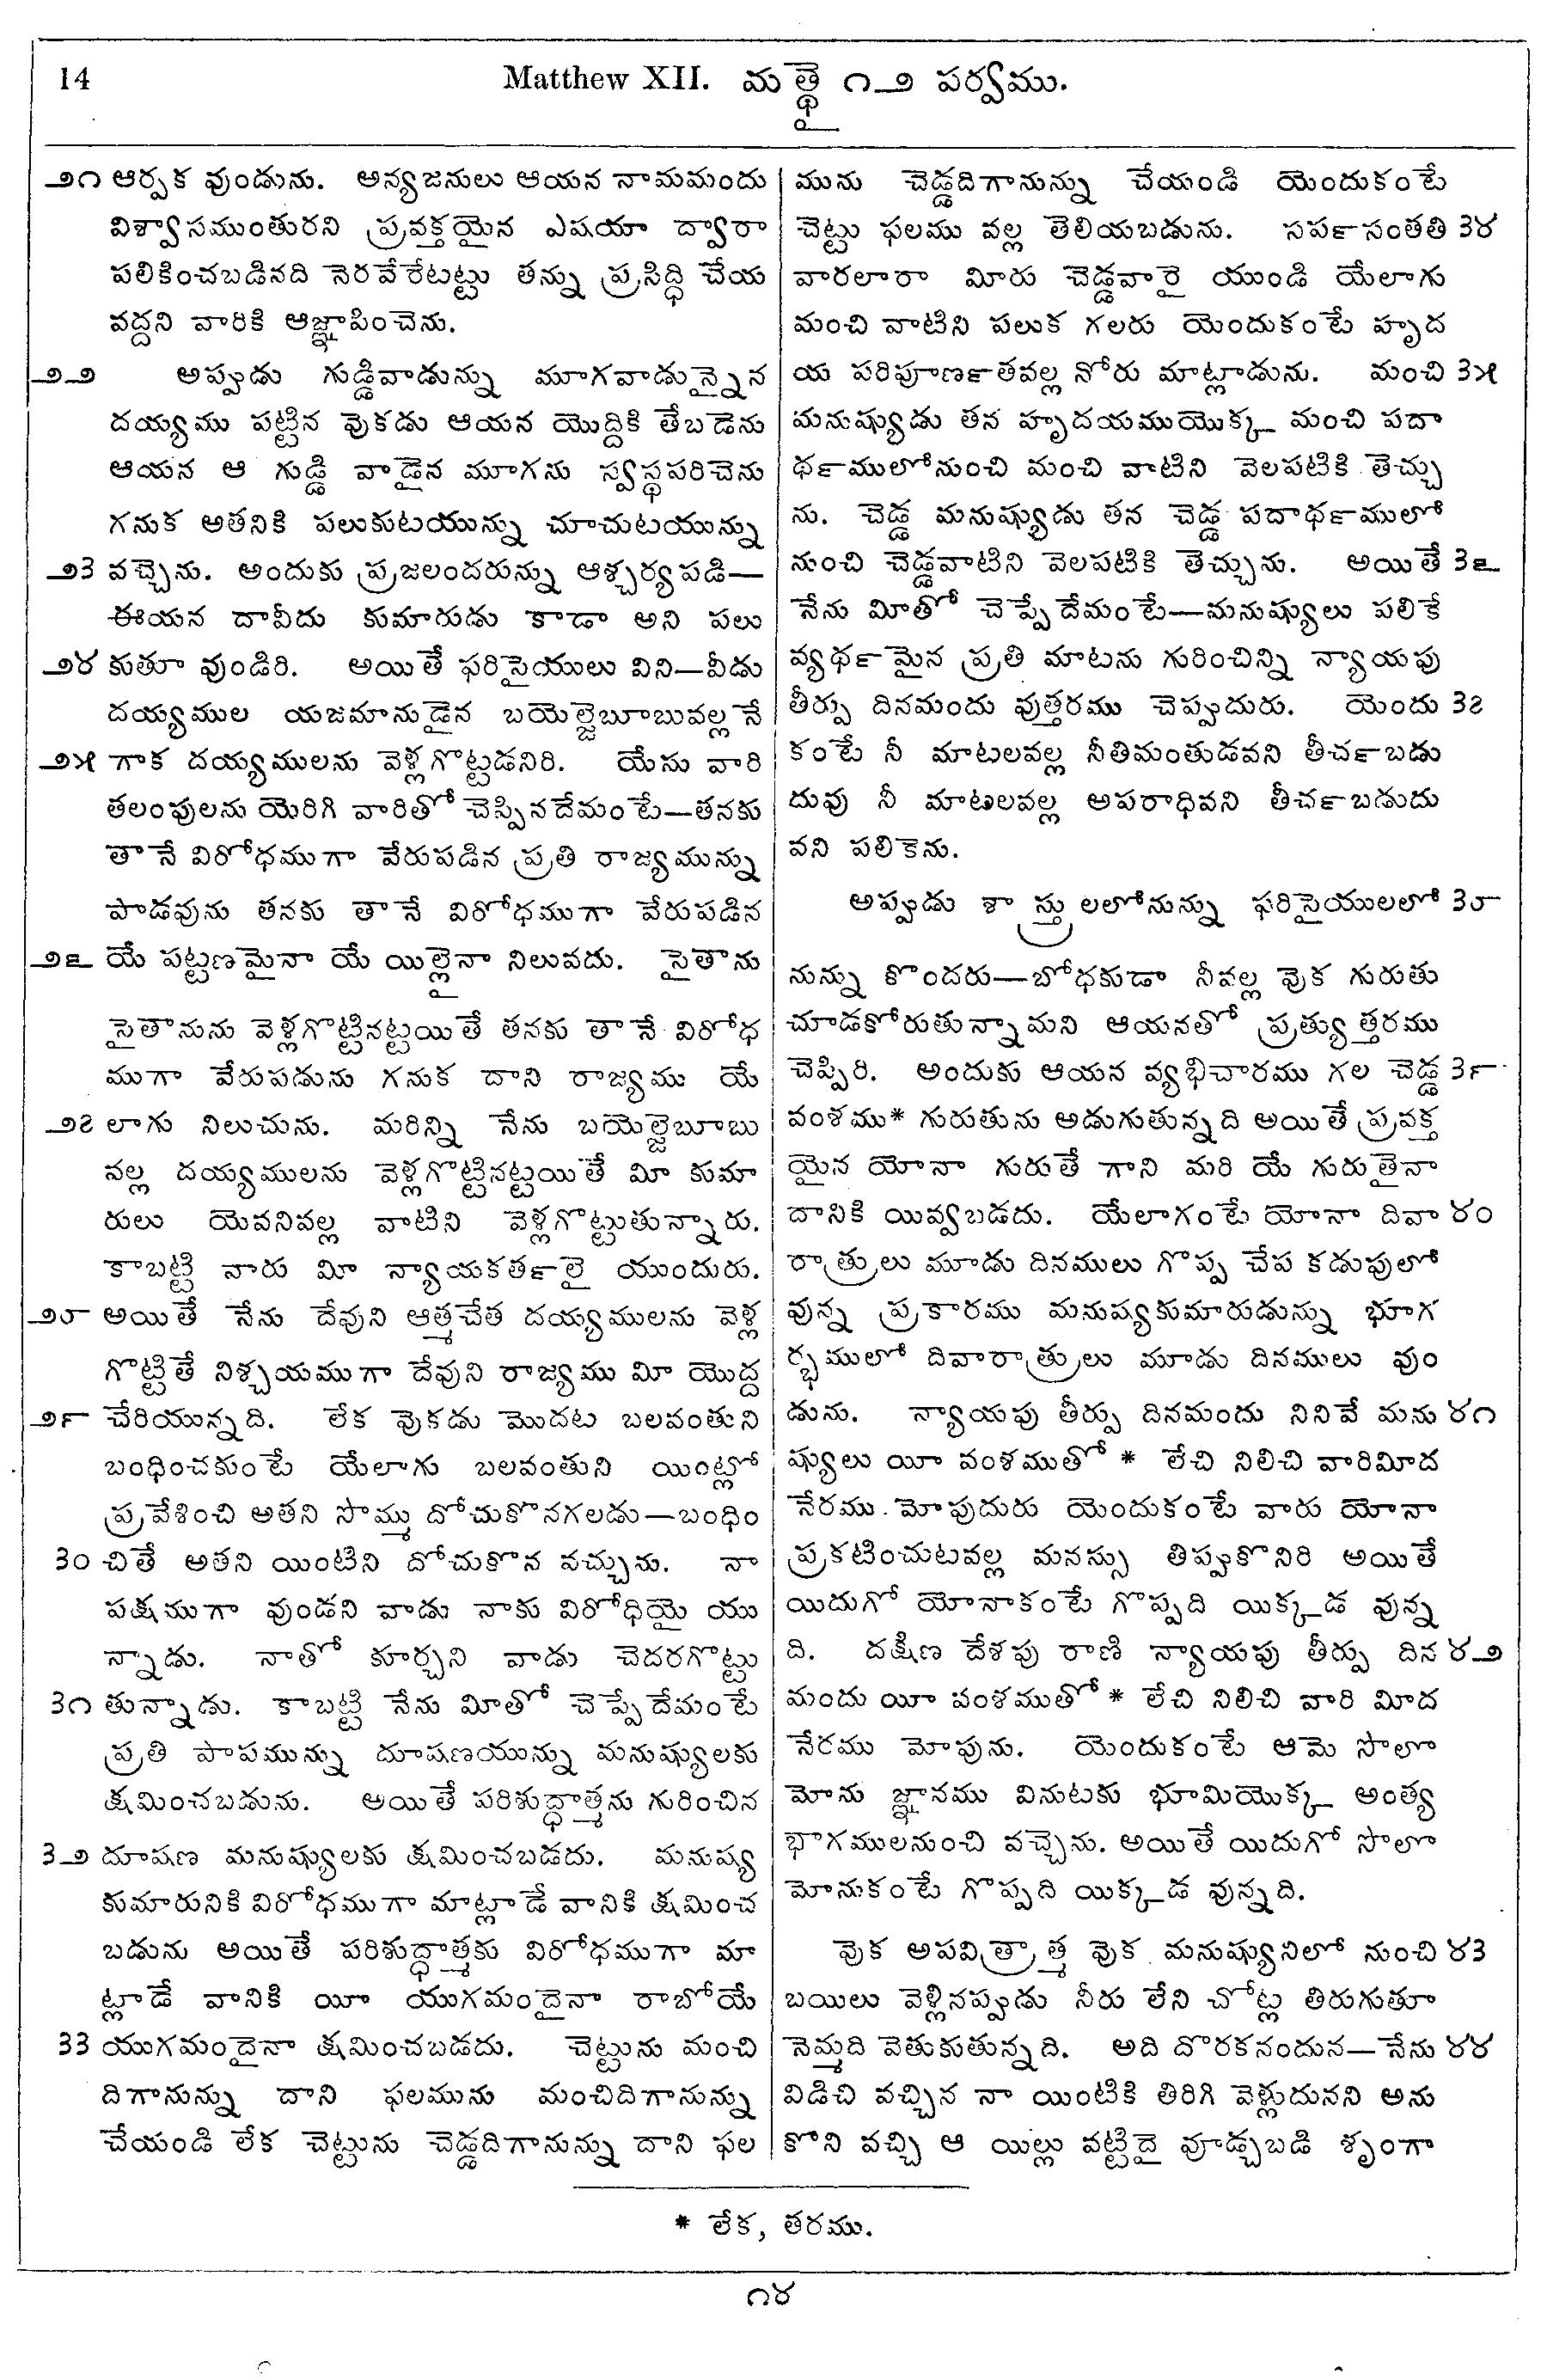 14 Matthew XII. మత్థై ౧౨ పర్వము.
౨౧ ఆర్పక వుండును. అన్యజనులు ఆయన నామమందు
విశ్వాసముంతురని ప్రవక్తయైన ఎషయా ద్వారా
పలికించబడినది నెరవేరేటట్టు తన్ను ప్రసిద్ధి చేయ
వద్దని వారికి ఆజ్ఞాపించెను.
౨౨ అప్పుడు గుడ్డివాడున్ను మూగవాడున్నైన
దయ్యము పట్టిన వొకడు ఆయన యొద్దికి తేబడెను
ఆయన ఆ గుడ్డి వాడైన మూగను స్వస్థపరిచెను
గనుక అతనికి పలుకుటయున్ను చూచుటయున్ను
౨౩ వచ్చెను. అందుకు ప్రజలందరున్ను ఆశ్చర్యపడి—
ఈయన దావీదు కుమారుడు కాడా అని పలు
౨౪ కుతూ వుండిరి. అయితే ఫరిసైయులు విని—వీడు
దయ్యముల యజమానుడైన బయెల్జెబూబువల్లనే
౨౫ గాక దయ్యములను వెళ్లగొట్టడనిరి. యేసు వారి
తలంపులను యెరిగి వారితో చెప్పినదేమంటే—తనకు
తానే విరోధముగా వేరుపడిన ప్రతి రాజ్యమున్ను
పాడవును తనకు తానే విరోధముగా వేరుపడిన
౨౬ యే పట్టణమైనా యే యిల్లైనా నిలువదు. సైతాను
సైతానును వెళ్లగొట్టినట్టయితే తనకు తానే విరోధ
ముగా వేరుపడును గనుక దాని రాజ్యము యే
౨౭ లాగు నిలుచును. మరిన్ని నేను బయెల్జెబూబు
వల్ల దయ్యములను వెళ్లగొట్టినట్టయితే మీ కుమా
రులు యెవనివల్ల వాటిని వెళ్లగొట్టుతున్నారు.
కాబట్టి వారు మీ న్యాయకతఁలై యుందురు.
౨౮ అయితే నేను దేవుని ఆత్మచేత దయ్యములను వెళ్ల
గొట్టితే నిశ్చయముగా దేవుని రాజ్యము మీ యొద్ద
౨౯ చేరియున్నది. లేక వొకడు మొదట బలవంతుని
బంధించకుంటే యేలాగు బలవంతుని యింట్లో
ప్రవేశించి అతని సొమ్ము దోచుకొనగలడు—బంధిం
౩౦ చితే అతని యింటిని దోచుకొన వచ్చును. నా
పక్షముగా వుండని వాడు నాకు విరోధియై యు
న్నాడు. నాతో కూర్చని వాడు చెదరగొట్టు
౩౧ తున్నాడు. కాబట్టి నేను మీతో చెప్పేదేమంటే
ప్రతి పాపమున్ను దూషణయున్ను మనుష్యులకు
క్షమించబడును. అయితే పరిశుద్ధాత్మను గురించిన
౩౨ దూషణ మనుష్యులకు క్షమించబడదు. మనుష్య
కుమారునికి విరోధముగా మాట్లాడే వానికి క్షమించ
బడును అయితే పరిశుద్ధాత్మకు విరోధముగా మా
ట్లాడే వానికి యీ యుగమందైనా రాబోయే
౩౩ యుగమందైనా క్షమించబడదు. చెట్టును మంచి
దిగానున్ను దాని ఫలమును మంచిదిగానున్ను
చేయండి లేక చెట్టును చెడ్డదిగానున్ను దాని ఫల
మును చెడ్డదిగానున్ను చేయండి యెందుకంటే
చెట్టు ఫలము వల్ల తెలియబడును. సపఁసంతతి ౩౪
వారలారా మీరు చెడ్డవారై యుండి యేలాగు
మంచి వాటిని పలుక గలరు యెందుకంటే హృద
య పరిపూణఁతవల్ల నోరు మాట్లాడును. మంచి ౩౫
మనుష్యుడు తన హృదయముయొక్క మంచి పదా
థఁములోనుంచి మంచి వాటిని వెలపటికి తెచ్చు
ను. చెడ్డ మనుష్యుడు తన చెడ్డ పదాథఁములో
నుంచి చెడ్డవాటిని వెలపటికి తెచ్చును. అయితే ౩౬
నేను మీతో చెప్పేదేమంటే—మనుష్యులు పలికే
వ్యథఁమైన ప్రతి మాటను గురించిన్ని న్యాయపు
తీర్పు దినమందు వుత్తరము చెప్పుదురు. యెందు ౩౭
కంటే నీ మాటలవల్ల నీతిమంతుడవని తీచఁబడు
దువు నీ మాటలవల్ల అపరాధివని తీచఁబడుదు
వని పలికెను.
అప్పుడు శాస్త్రులలోనున్ను ఫరిసైయులలో ౩౮
నున్ను కొందరు—బోధకుడా నీవల్ల వొక గురుతు
చూడకోరుతున్నామని ఆయనతో ప్రత్యుత్తరము
చెప్పిరి. అందుకు ఆయన వ్యభిచారము గల చెడ్డ ౩౯
వంశము* గురుతును అడుగుతున్నది అయితే ప్రవక్త
యైన యోనా గురుతే గాని మరి యే గురుతైనా
దానికి యివ్వబడదు. యేలాగంటే యోనా దివా ౪౦
రాత్రులు మూడు దినములు గొప్ప చేప కడుపులో
వున్న ప్రకారము మనుష్యకుమారుడున్ను భూగ
ర్భములో దివారాత్రులు మూడు దినములు వుం
డును. న్యాయపు తీర్పు దినమందు నినివే మను ౪౧
ష్యులు యీ వంశముతో * లేచి నిలిచి వారిమీద
నేరము మోపుదురు యెందుకంటే వారు యోనా
ప్రకటించుటవల్ల మనస్సు తిప్పుకొనిరి అయితే
యిదుగో యోనాకంటే గొప్పది యిక్కడ వున్న
ది. దక్షిణ దేశపు రాణి న్యాయపు తీర్పు దిన ౪౨
మందు యీ వంశముతో * లేచి నిలిచి వారి మీద
నేరము మోపును. యెందుకంటే ఆమె సొలా
మోను జ్ఞానము వినుటకు భూమియొక్క అంత్య
భాగములనుంచి వచ్చెను. అయితే యిదుగో సొలా
మోనుకంటే గొప్పది యిక్కడ వున్నది.
వొక అపవిత్రాత్మ వొక మనుష్యునిలో నుంచి ౪౩
బయిలు వెళ్లినప్పుడు నీరు లేని చోట్ల తిరుగుతూ
నెమ్మది వెతుకుతున్నది. అది దొరకనందున—నేను ౪౪
విడిచి వచ్చిన నా యింటికి తిరిగి వెళ్లుదునని అను
కొని వచ్చి ఆ యిల్లు వట్టిదై వూడ్చబడి శృంగా
* లేక, తరము.
౧౪